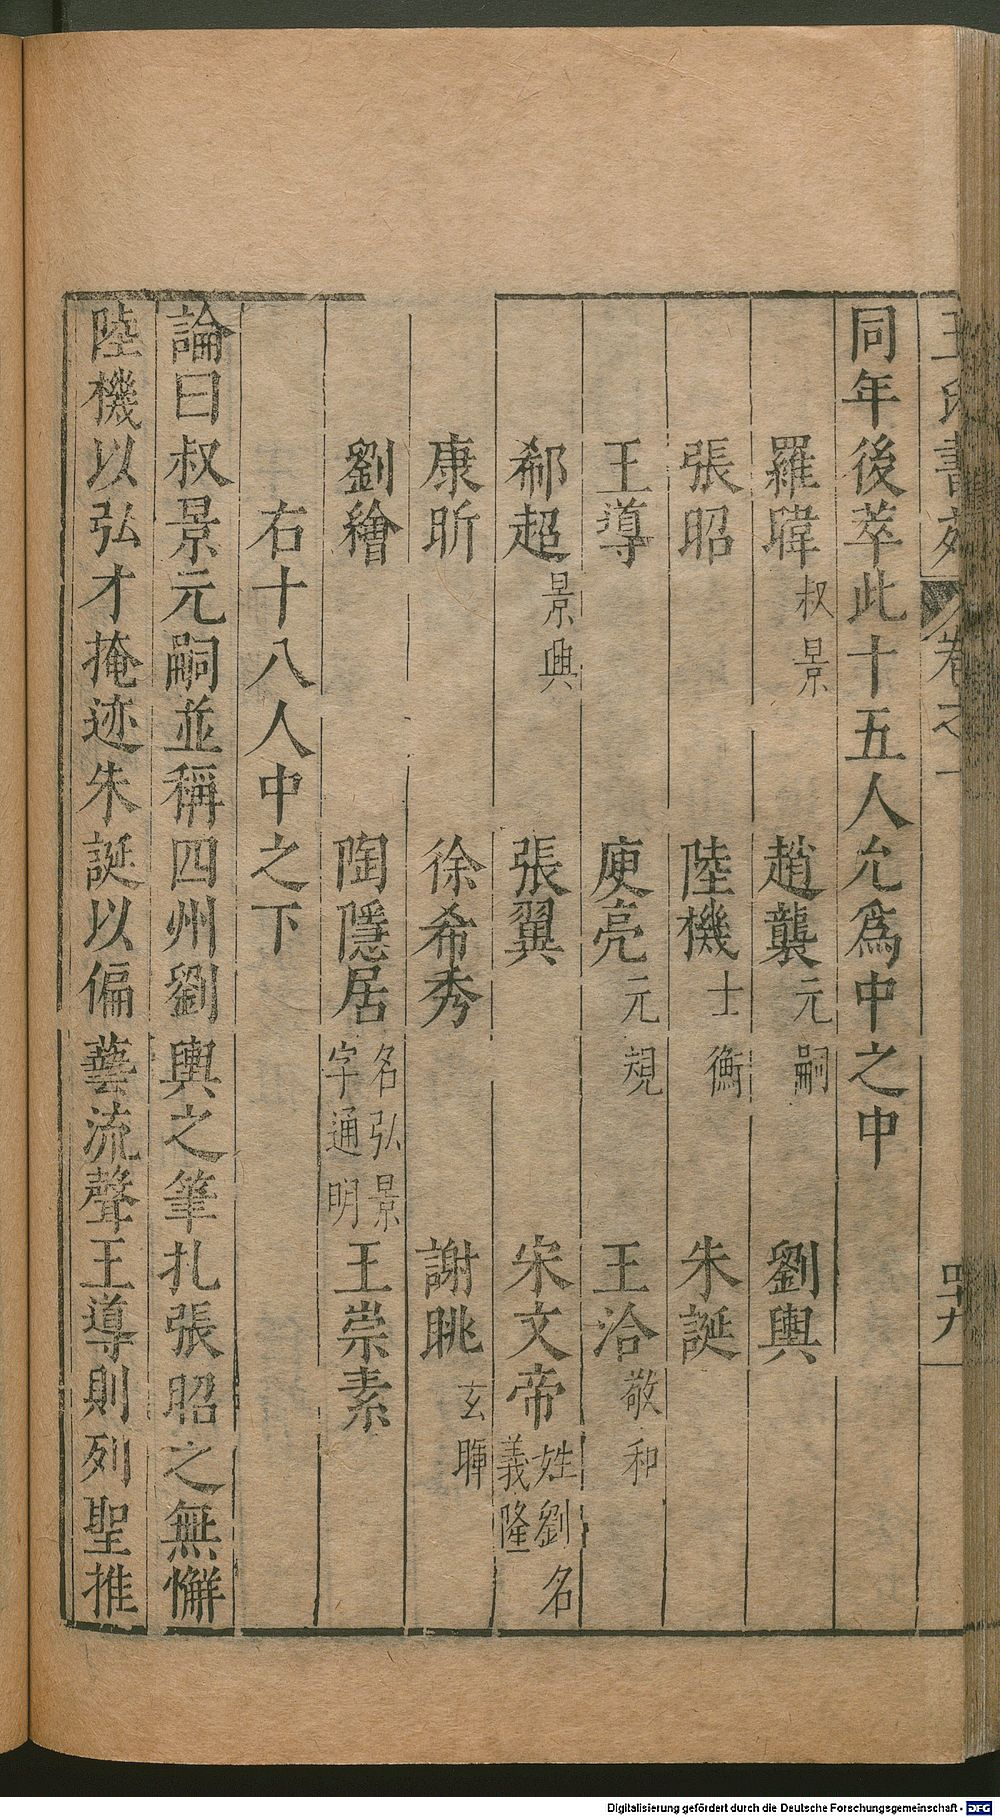 王氏書苑 卷之一 四十九
同年後萃此十五人允爲中之中
羅暐叔景 趙襲元嗣 劉輿
張昭 陸機士衡 朱誕
王導 庾亮元規 王洽敬和
郗超景興 張翼 宋文帝姓劉名義隆
康昕 徐希秀 謝眺玄暉
劉繪 陶隱居名弘景字通明 王崇素
右十八人中之下
論曰叔景元嗣並稱四州劉輿之筆扎張昭之無懈
陸機以弘才掩迹朱誕以偏藝流聲王導則列聖推
Digitalisierung gefördert durch die Deutsche Forschungsgemeinschaft - DFG